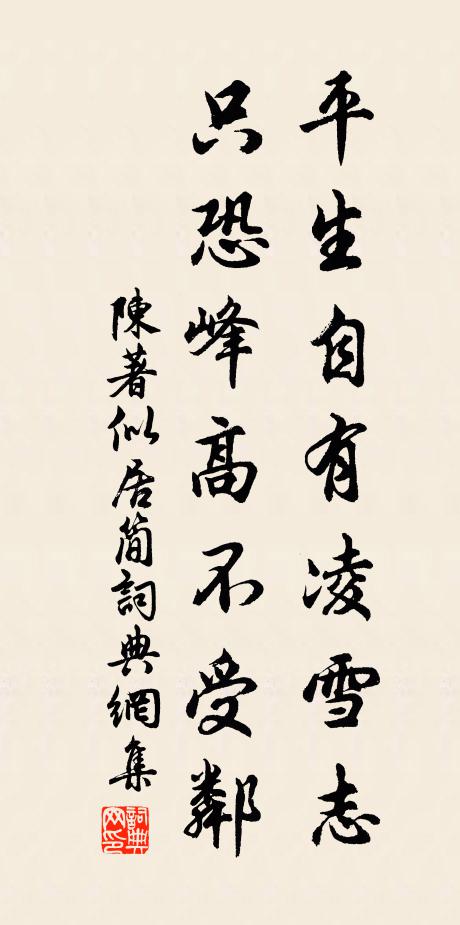 平生自有凌雪志
只恐峰高不受鄰
陳著似居簡詞典網集
詞典网印